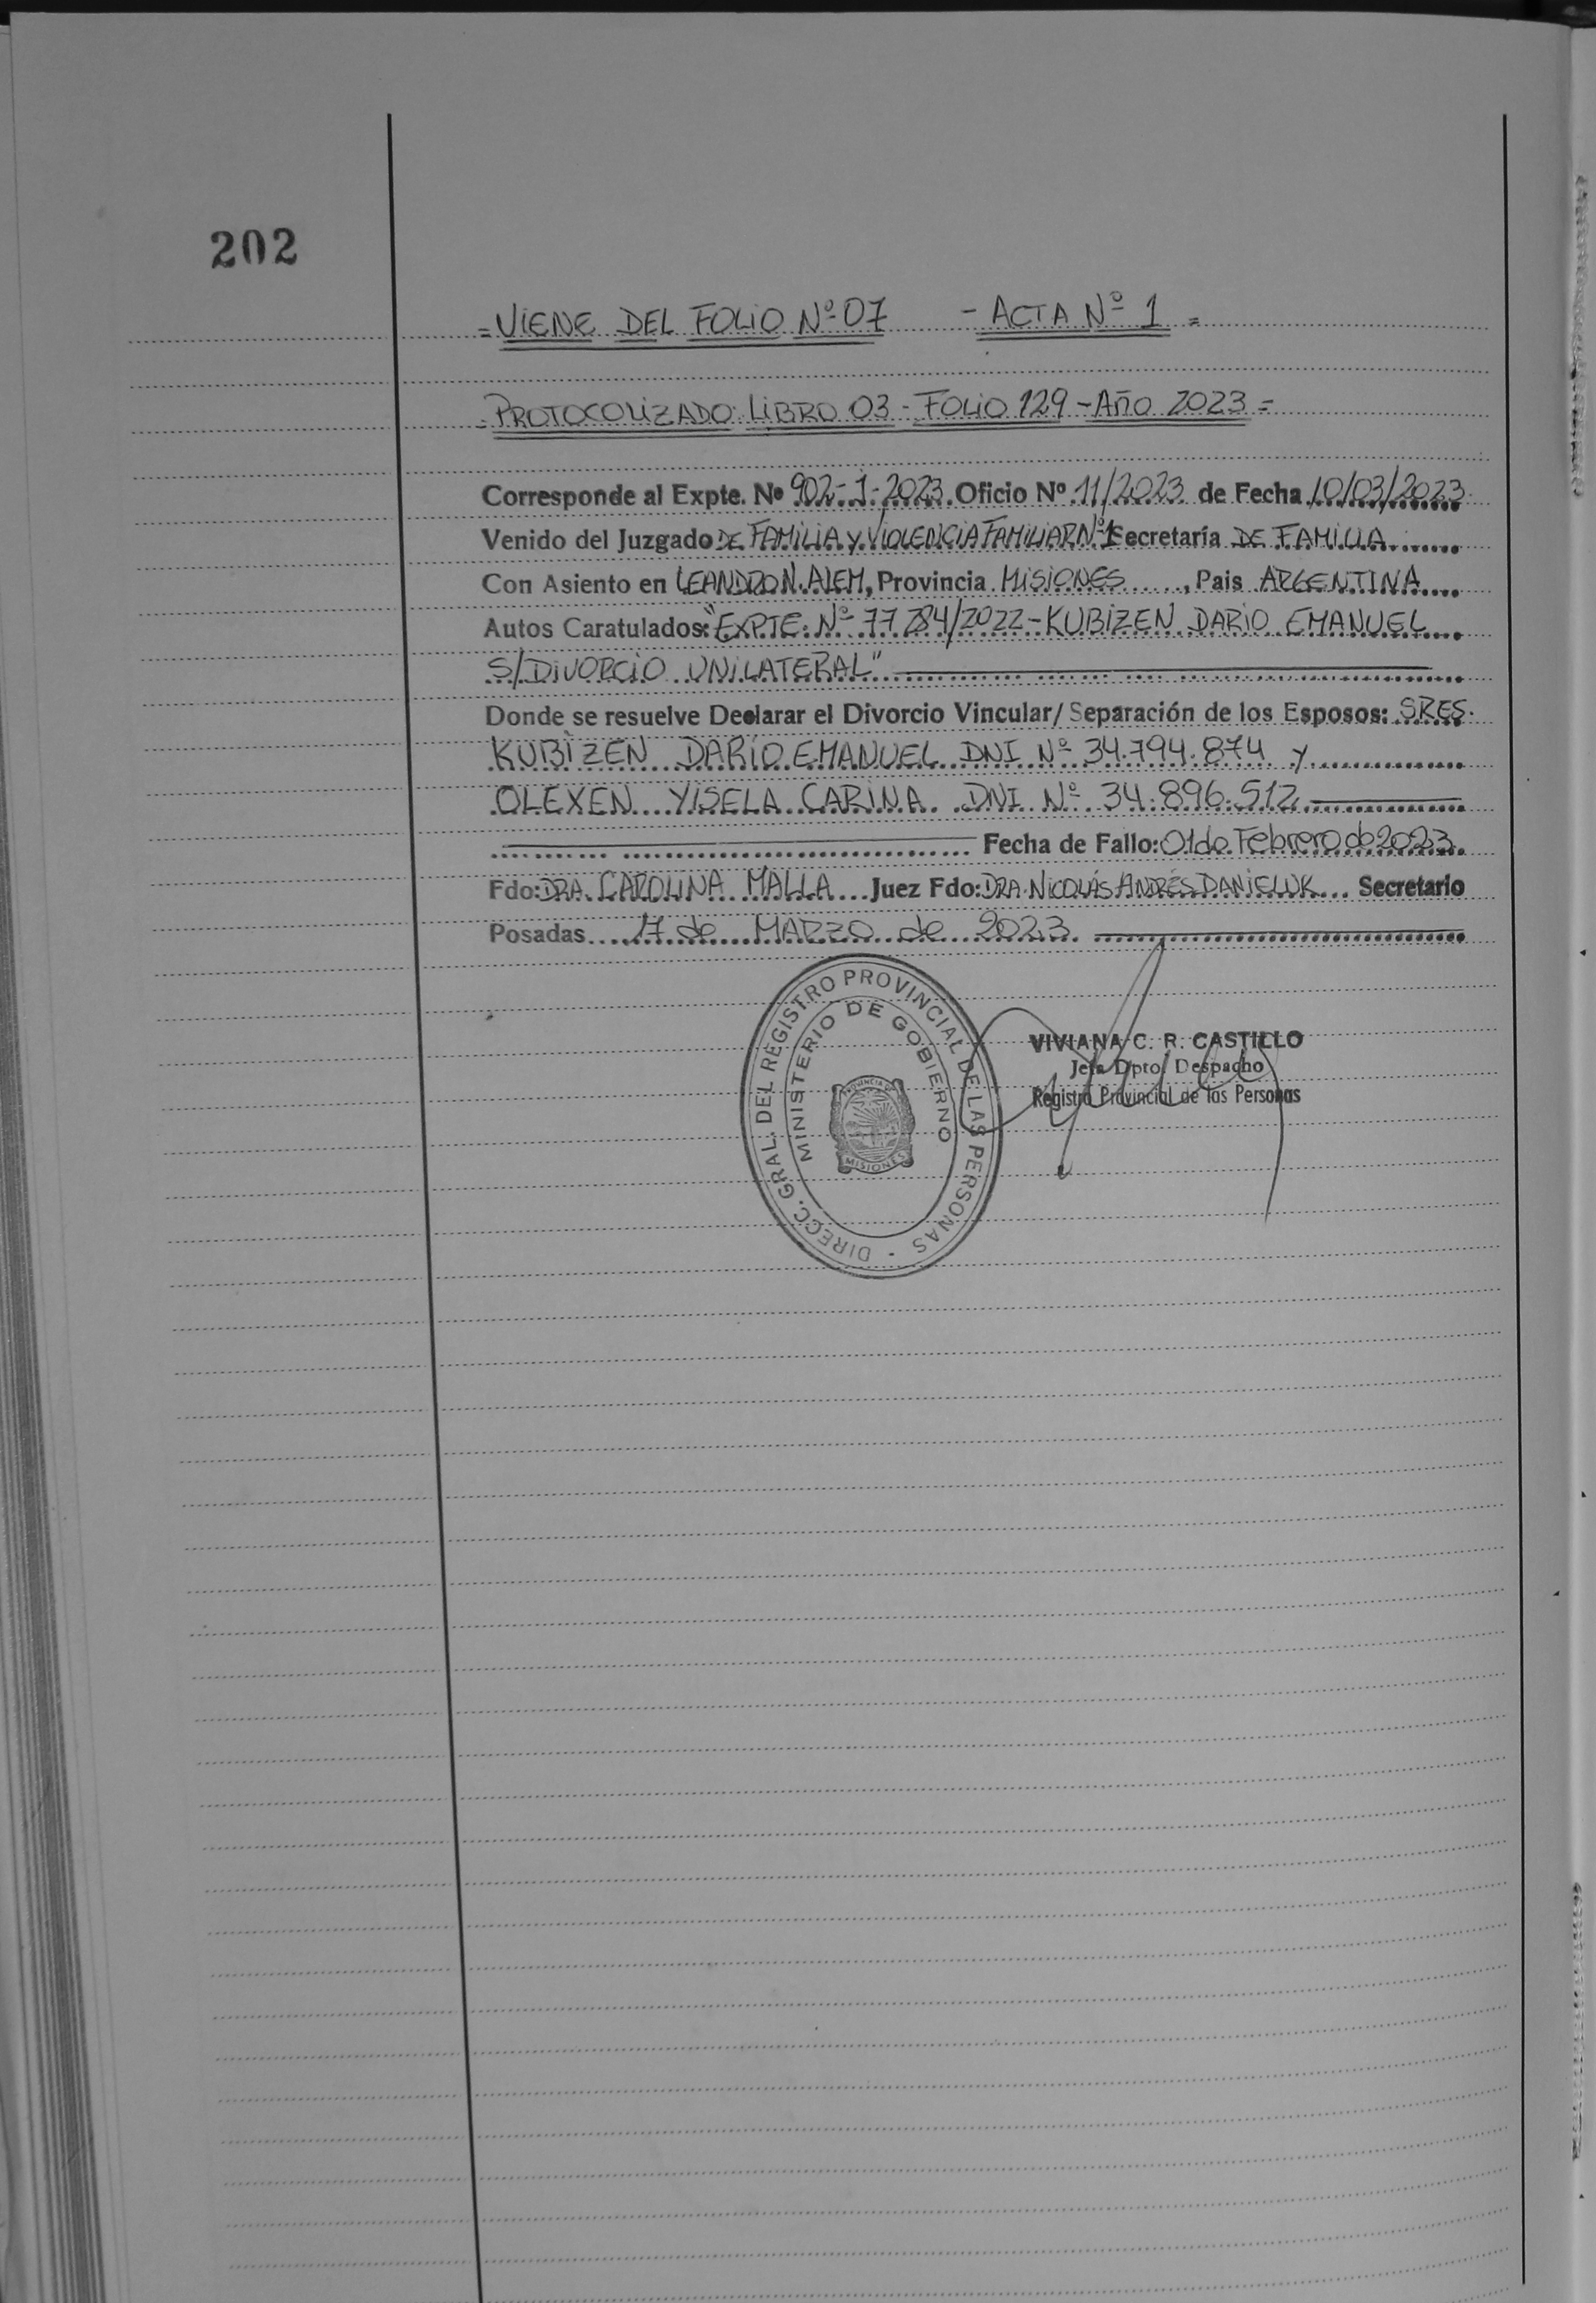 202
= VIENE DEL FOLIO Nº 07 - ACTA Nº 1 =
- PROTOCOLIZADO: LIBRO 03 - FOLIO 129 - AÑO 2023 =
Corresponde al Expte. Nº 902-1-2023. Oficio Nº 11/2023 de Fecha 10/03/2023
Venido del Juzgado DE FAMILIA y VIOLENCIA FAMILIAR Nº 1 Secretaría DE FAMILIA
Con Asiento en LEANDRO N. ALEM, Provincia MISIONES, Pais ARGENTINA
Autos Caratulados: "EXPTE. Nº 77284/2022 - KUBIZEN DARIO EMANUEL
S/DIVORCIO UNILATERAL"
Donde se resuelve Declarar el Divorcio Vincular/ Separación de los Esposos: SRES.
KUBIZEN DARÍO EMANUEL DNI Nº 34.794.874 y
OLEXEN YISELA CARINA DNI Nº 34.896.512
Fecha de Fallo: 01 de Febrero de 2023.
Fdo: DRA. CAROLINA MALLA Juez Fdo: DRA. NICOLÁS ANDRÉS DANIELUK Secretario
Posadas 17 de MARZO de 2023.
DIRECC. GRAL. DEL REGISTRO PROVINCIAL DE LAS PERSONAS -
MINISTERIO DE GOBIERNO
PROVINCIA DE
MISIONES
VIVIANA C. R. CASTILLO
Jefa Dpto. Despacho
Registro Provincial de las Personas